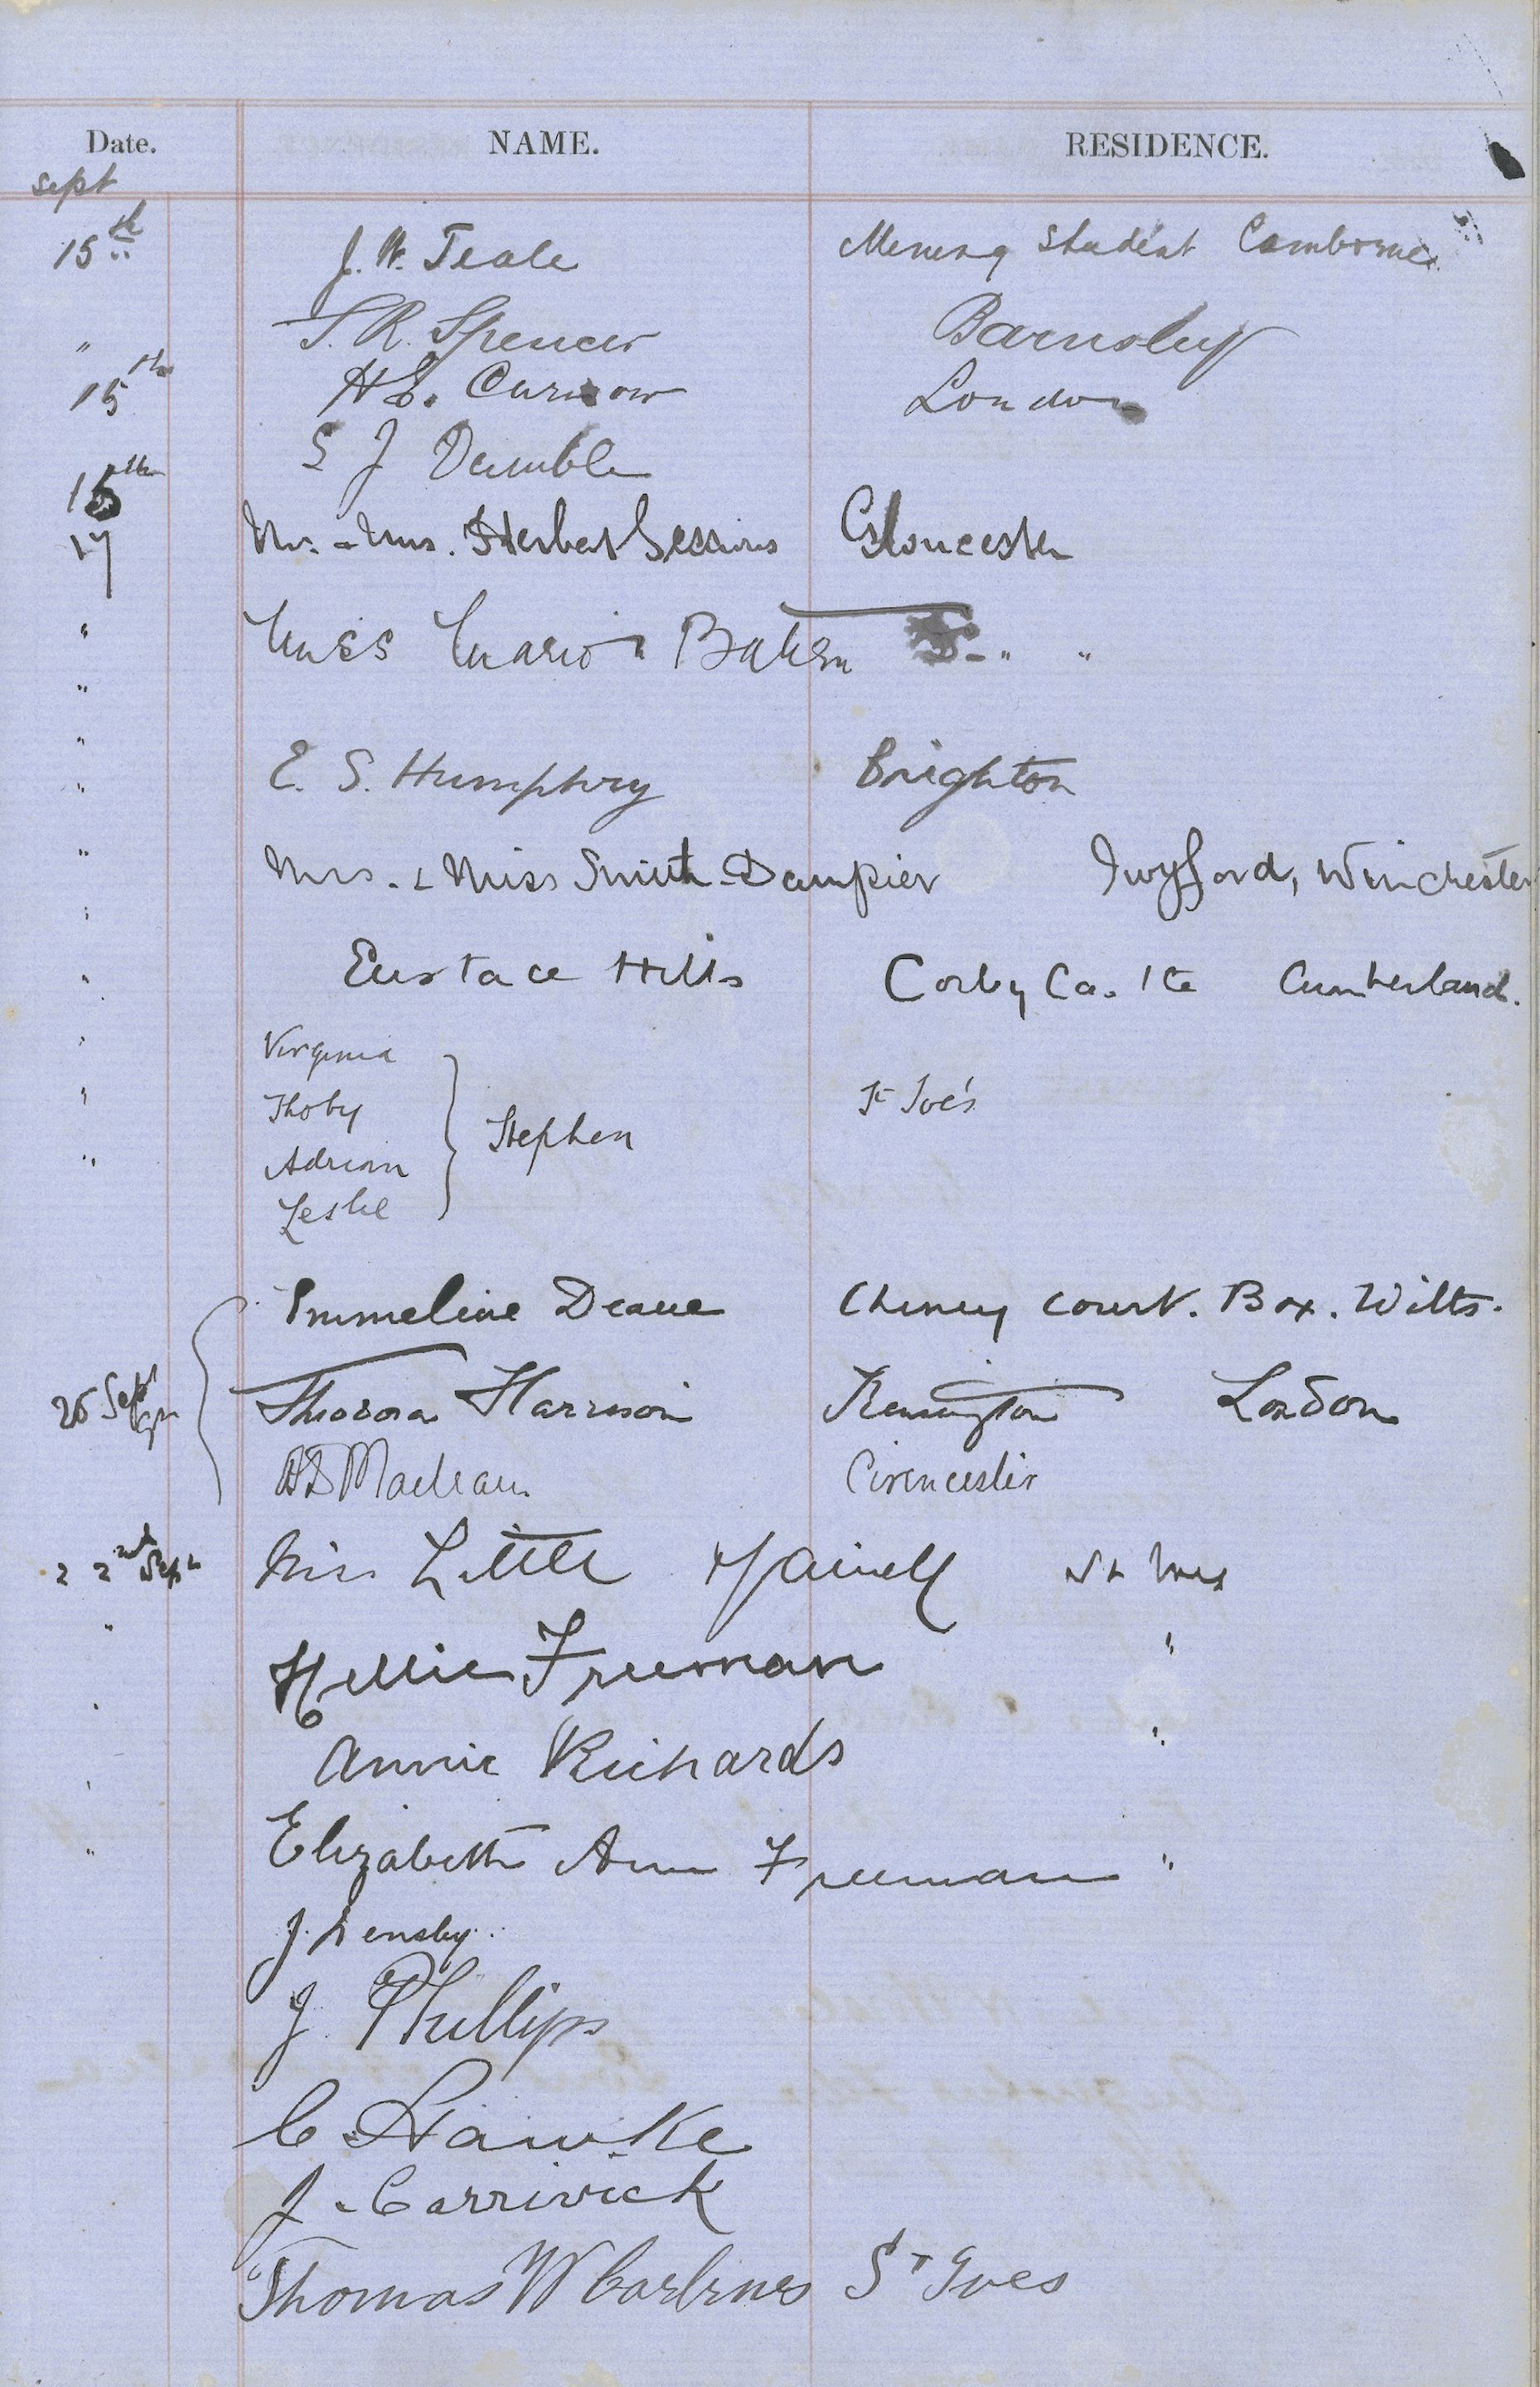 Date. NAME. RESIDENCE.
Sept
15th J. W. Teale Mining Student Camborne
" S. R. Spencer Barnsley
15th H E. Curnow London
S J Dumble
15th
17 Mr. & Mrs. Herbert Sessions Gloucester
" Miss Marion Baker " "
"
"
" E. S. Humphry Brighton
" Mrs. & Miss Smith-Dampier Twyford, Winchester
"
" Eustace Hills Corby Castle Cumberland.
" Virginia
" Thoby Stephen St Ives
" Adrian
Leslie
Emmeline Deane Cheney Court. Box. Wilts.
Theodora Harrison Kensington London
Maclean Cirencester
22nd Sept Miss Little St Ives
" Nellie Freeman "
Annie Richards "
" Elizabeth Ann Freeman "
J.
J Phillips
C Hawke
J. Carrivick
Thomas W St Ives